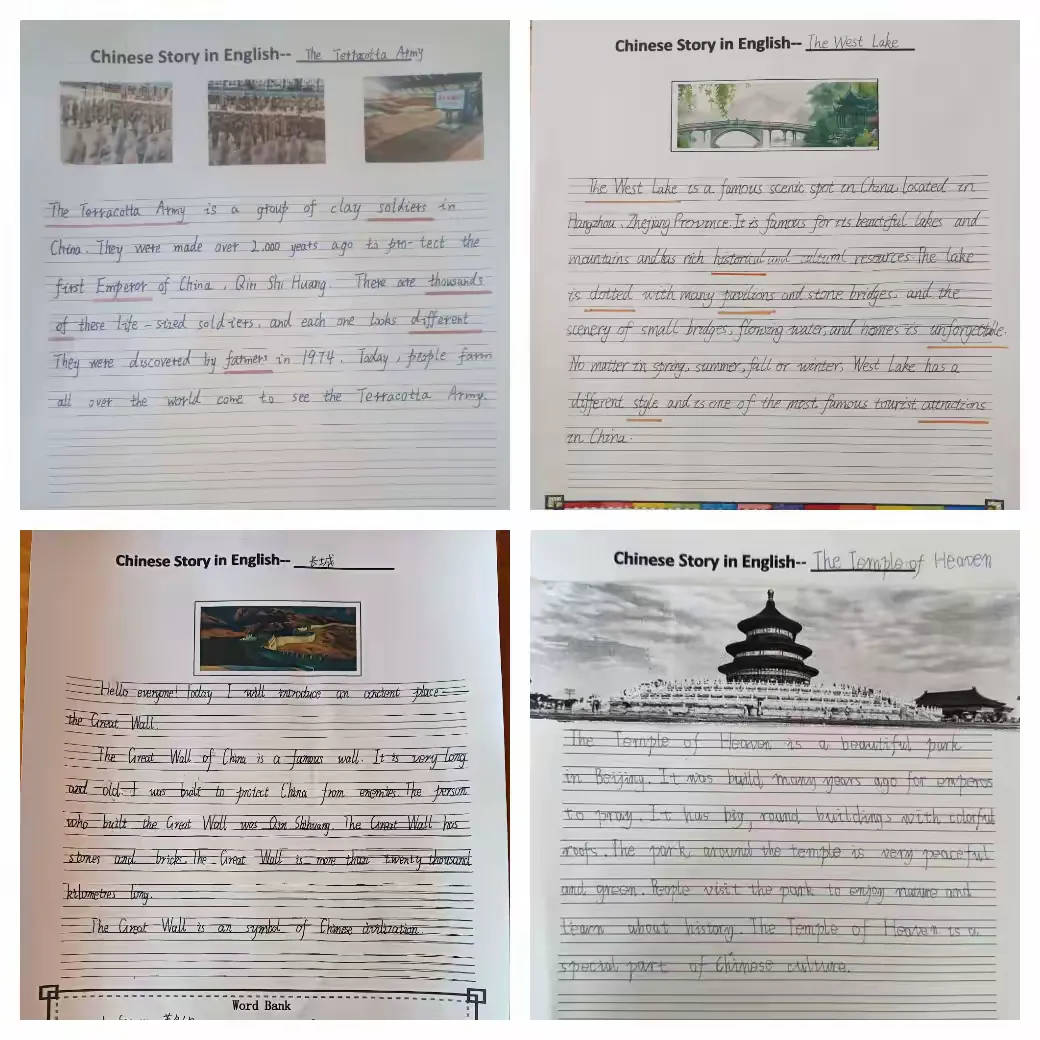 Chinese Story in English-- The Terracotta Army
The Terracotta Army is a group of clay soldiers in
China. They were made over 2.000 years ago to pro-tect the
first Emperor of China, Qin Shi Huang. There are thousands
of these life-sized soldiers, and each one looks different
They were discovered by farmers in 1974. Today, people farm
all over the world come to see the Terracotta Army.
Chinese Story in English-- The West Lake
The West Lake is a famous scenic spot in China, located in
Hangzhou, Zhejiang Province. It is famous for its beautiful lakes and
mountains and has rich historical and cultural resources. The lake
is dotted with many pavilions and stone bridges, and the
scenery of small bridges, flowing water, and homes is unforgettable.
No matter in spring, summer, fall or winter, West Lake has a
different style and is one of the most famous tourist attractions
in China.
Chinese Story in English-- 长城
Hello everyone! Today I will introduce an ancient place-
the Great Wall.
The Great Wall of China is a famous wall. It is very long
and old. I was built to protect China from enemies. The person
who built the Great Wall was Qin Shihuang. The Great Wall has
stones and bricks. The Great Wall is more than twenty thousand
kilometres long.
The Great Wall is an symbol of Chinese civilization.
Word Bank
Chinese Story in English-- The Temple of Heaven
The Temple of Heaven is a beautiful park
in Beijing. It was build many years ago for emperos
to pray. It has big, round buildings with colorful
roofs. The park around the temple is very peaceful
and green. People visit the park to enjoy nature and
learn about history. The Temple of Heaven is a
special part of Chinese culture.